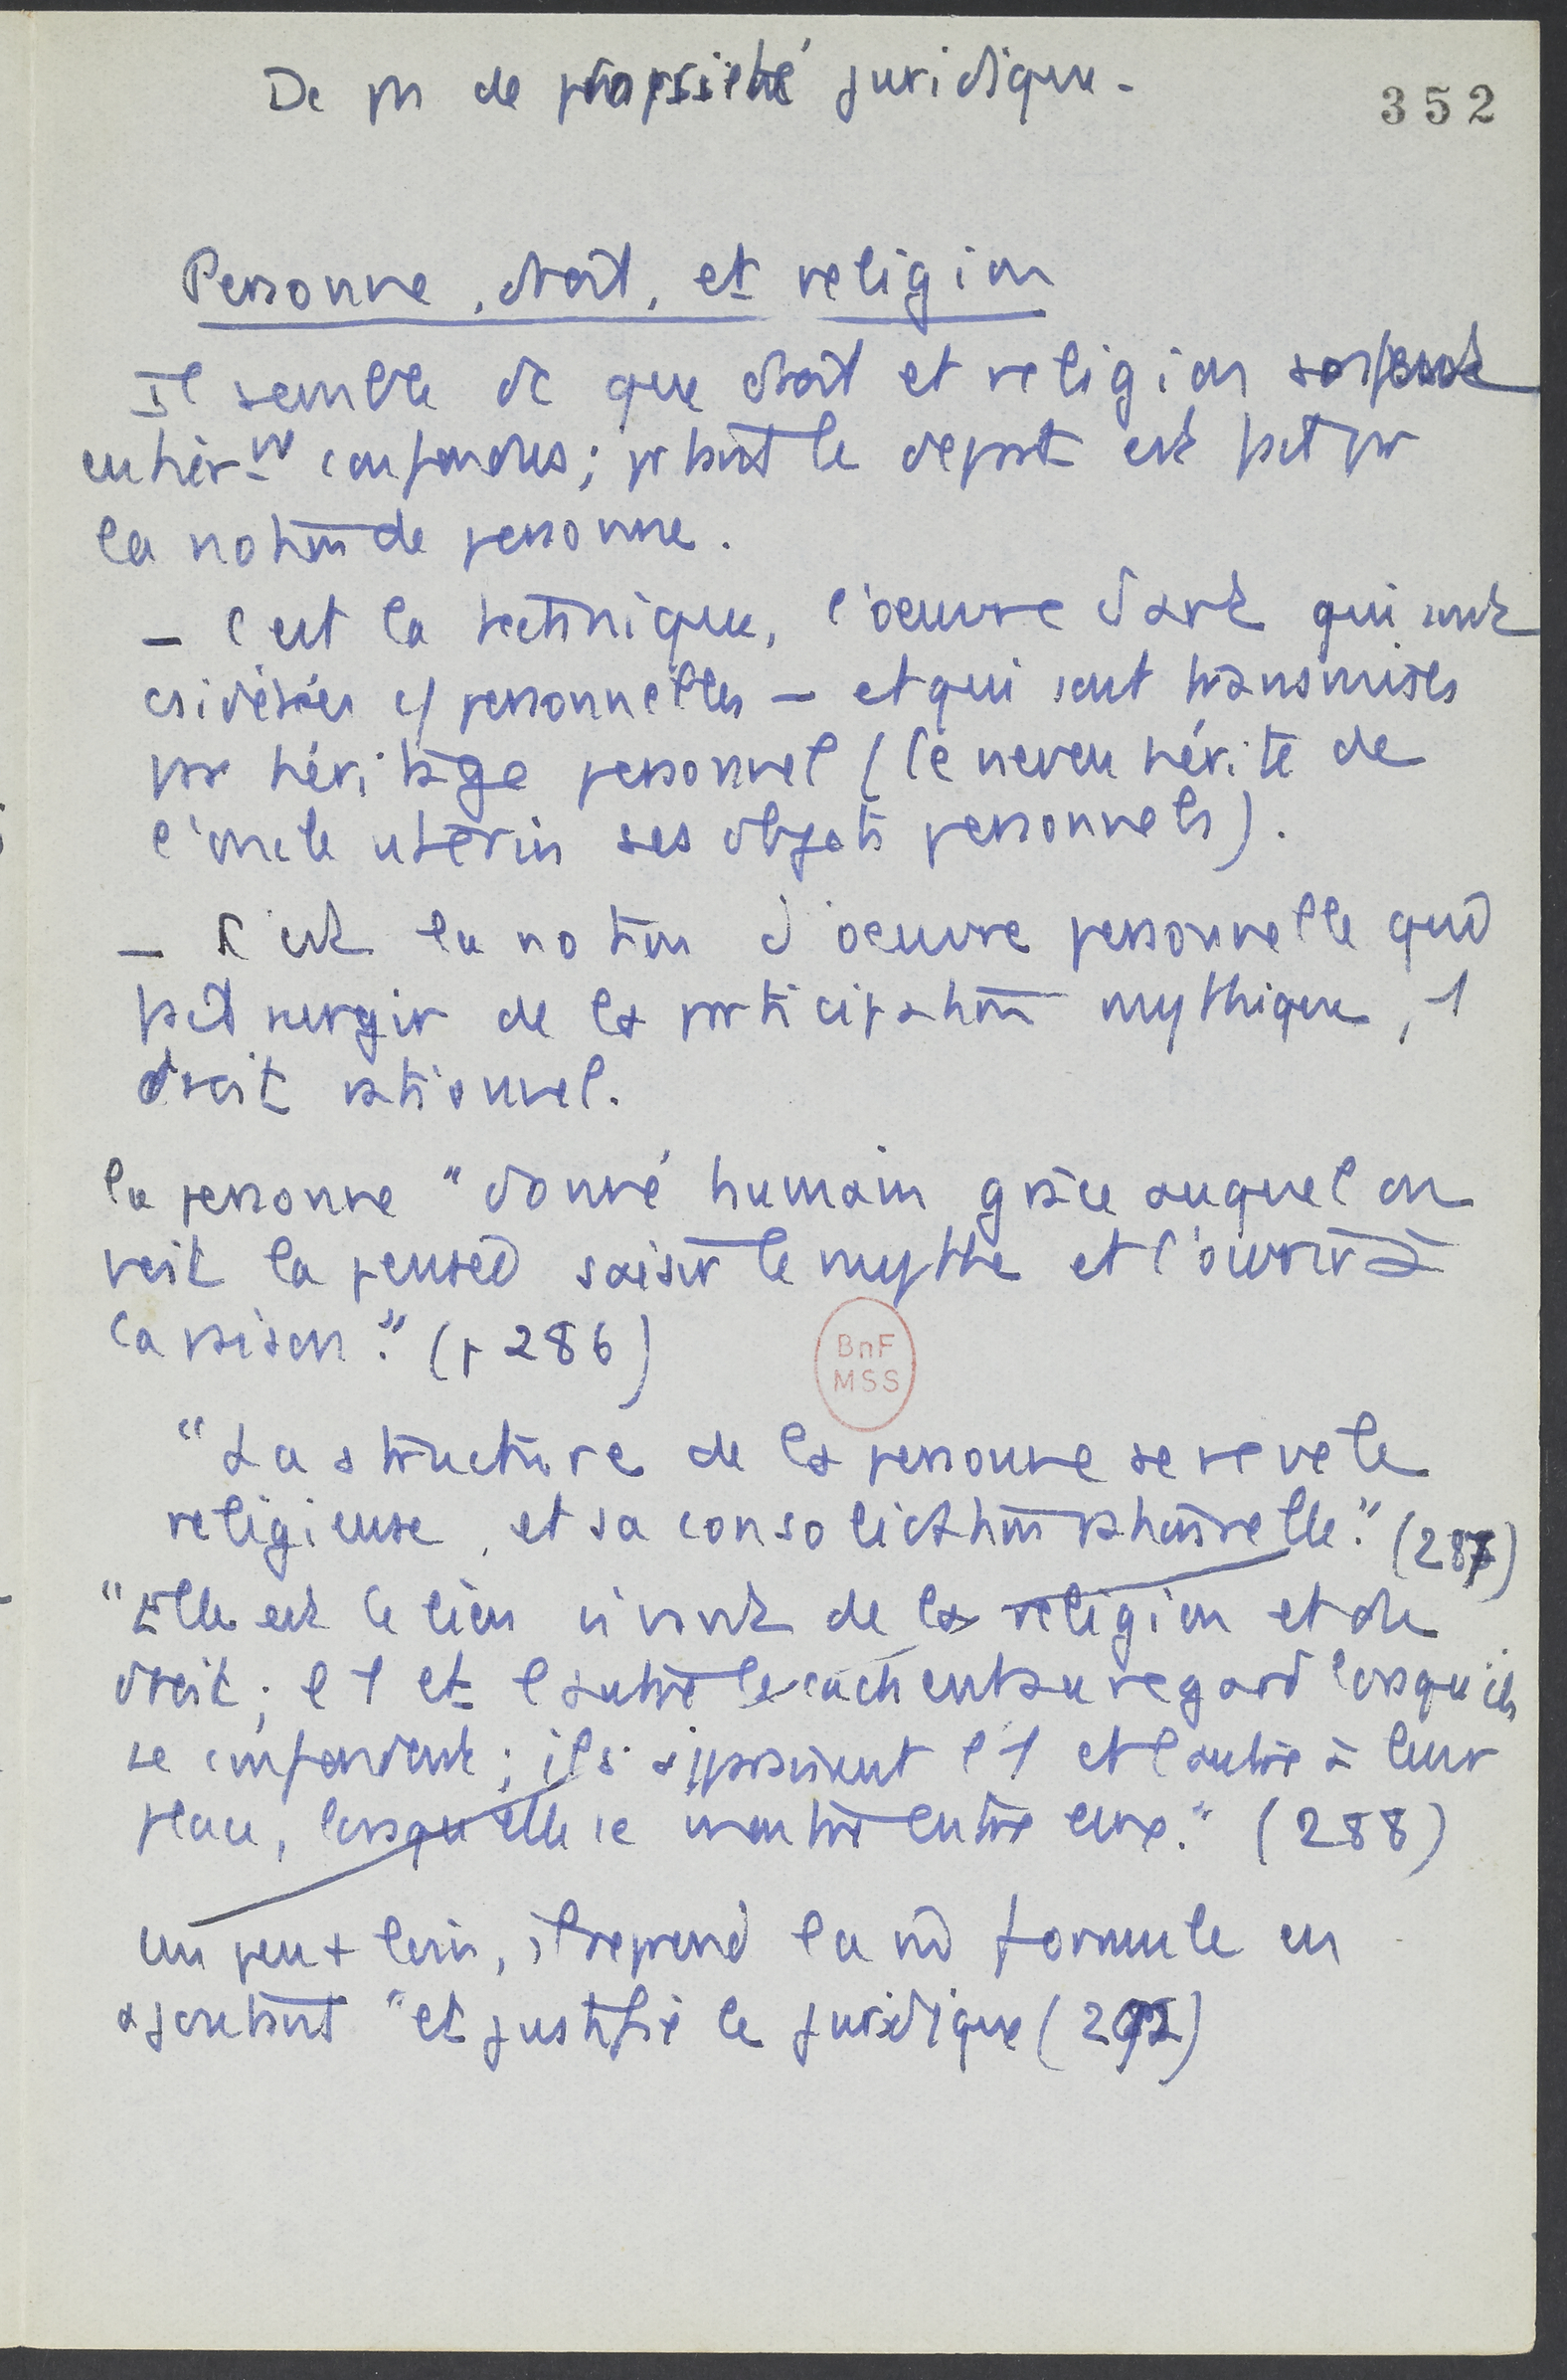 De pt de propriété juridique.
352
Personne, droit, et religion
Il semble dc que droit et religion soient
entièrmt confondus; pr tant le départ est fait pr
la notion de personne.
– C'est la technique, l'oeuvre d'art qui sont
csidérées c/ personnelles – et qui sont transmises
par héritage personnel (le neveu hérite de
l'oncle utérin ses objets personnels).
– C'est la notion d'oeuvre personnelle qui
fait surgir de la participation mythique, 1
droit rationnel.
la personne "donné humain grâce auquel on
voit la pensée saisir le mythe et l'ouvrir à
la raison." (p 286)
BnF
MSS
"La structure de la personne se revele
religieuse, et sa consolidation rationnelle." (287)
"Elle est le lien vivant de la religion et du
droit; l'1 et l'autre le cachent au regard lorsqu'ils
se confondent; ils apparaissent l'1 et l'autre à leur
place, lorsqu'elle se montre entre eux." (288)
un peu + loin, il reprend la m̂ formule en
ajoutant "et justifie le juridique (292)